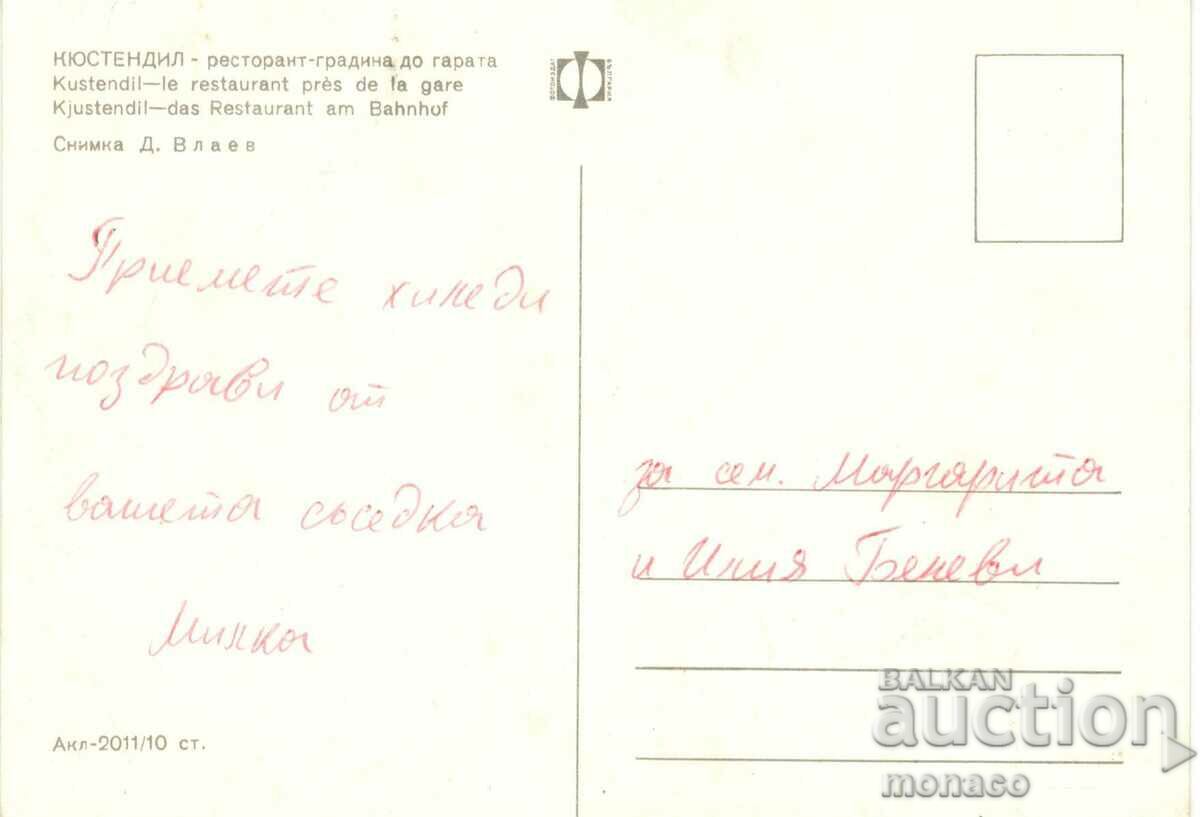 КЮСТЕНДИЛ - ресторант-градина до гарата
Kustendil—le restaurant près de la gare
Kjustendil—das Restaurant am Bahnhof
Снимка Д. Влаев
ФОТОИЗДАТ БЪЛГАРИЯ
Приемете хиляди
поздрави от
вашета съседка
Милка
Акл-2011/10 ст.
за сем. Маргарита
и Илия Беневи
BALKAN
auction
monaco